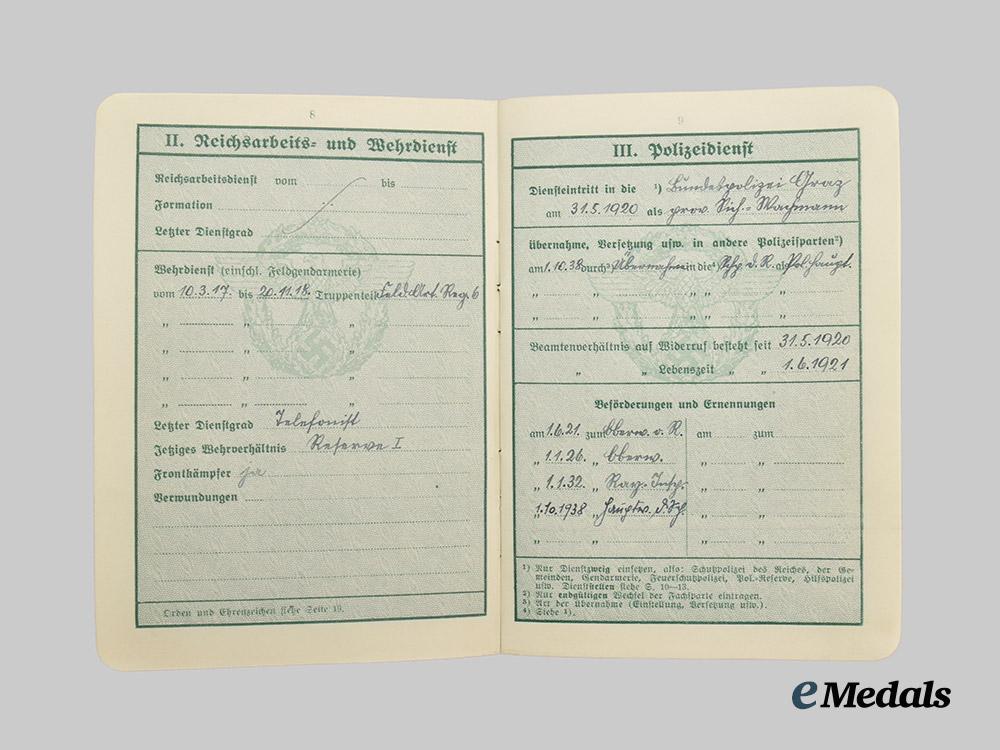 8
II. Reichsarbeits- und Wehrdienst
Reichsarbeitsdienst vom bis
Formation
Letzter Dienstgrad
Wehrdienst (einschl. Feldgendarmerie)
vom 10.3.17. bis 20.11.18. Truppenteil Feld.Art. Reg. 6
" " "
" " "
" " "
" " "
Letzter Dienstgrad Telefonist
Jetziges Wehrverhältnis Reserve I
Frontkämpfer ja
Verwundungen
Orden und Ehrenzeichen siehe Seite 19.
9
III. Polizeidienst
Diensteintritt in die ¹) Bundespolizei Graz
am 31.5.1920 als prov. Sich.-Wachmann
Übernahme, Versetzung usw. in andere Polizeisparten²)
am 1.10.38 durch³) Übernahme in die⁴) Schp. d. R. als Pol. Haupt.
" " " " "
" " " " "
Beamtenverhältnis auf Widerruf besteht seit 31.5.1920
" " Lebenszeit " " 1.6.1921
Beförderungen und Ernennungen
am 1.6.21. zum Oberw. o. R. am zum
" 1.1.26. " Oberw. " "
" 1.1.32. " Ray. Insp. " "
" 1.10.1938 " Hauptw. d. Sch. " "
" " " "
¹) Nur Dienstzweig einsetzen, also: Schutzpolizei des Reiches, der Ge-
meinden, Gendarmerie, Feuerschutzpolizei, Pol.-Reserve, Hilfspolizei
usw. Dienststellen siehe S. 10—13.
²) Nur endgültigen Wechsel der Fachsparte eintragen.
³) Art der Übernahme (Einstellung, Versetzung usw.).
⁴) Siehe ¹).
eMedals